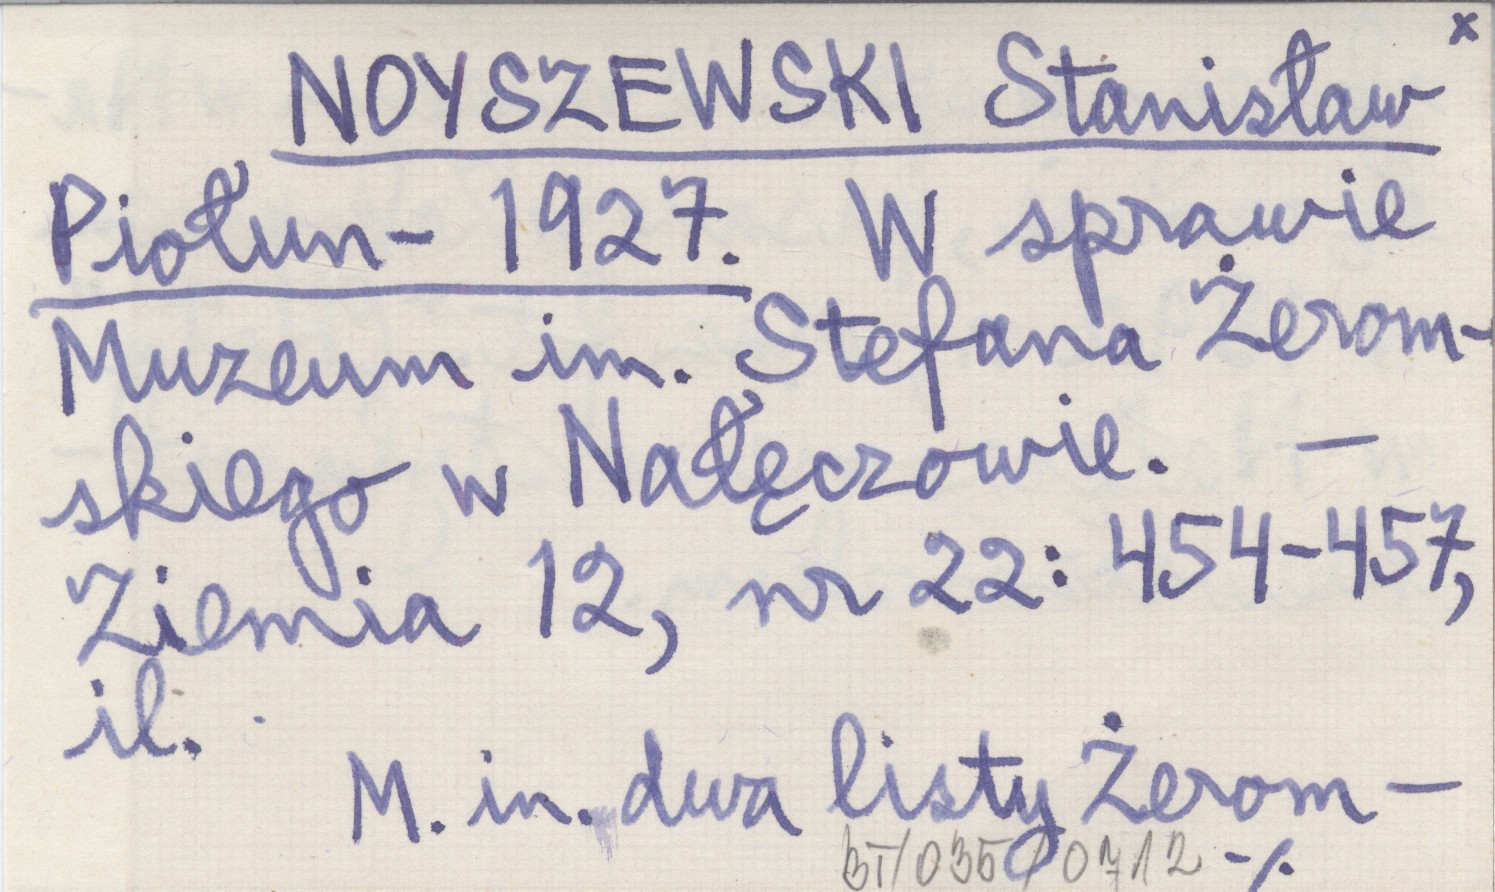 x
NOYSZEWSKI Stanisław
Piołun- 1927. W sprawie
Muzeum im. Stefana Żerom-
skiego w Nałęczowie. —
Ziemia 12, nr 22: 454-457,
il.
M. in. dwa listy Żerom-
BT/035/0712 -/.